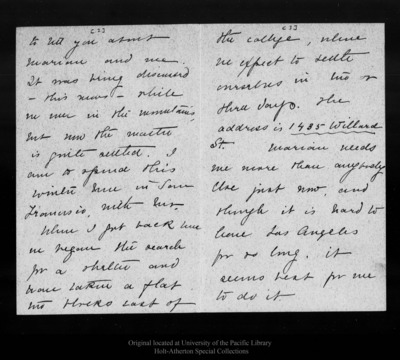 [2]
to tell you about
Marian and me.
It was being discussed
- this news - while
we were in the mountains,
but now the matter
is quite settled. I
am to spend this
winter here in San
Francisco, with her.
When I got back here
we began the search
for a shelter and
have taken a flat
two blocks east of
[3]
the college, where
we expect to settle
ourselves in two or
three days. The
address is 1435 Willard
St. Marian needs
me more than anybody
else just now, and
though it is hard to
leave Los Angeles
for so long, it
seems best for me
to do it
Original located at University of the Pacific Library
Holt-Atherton Special Collections